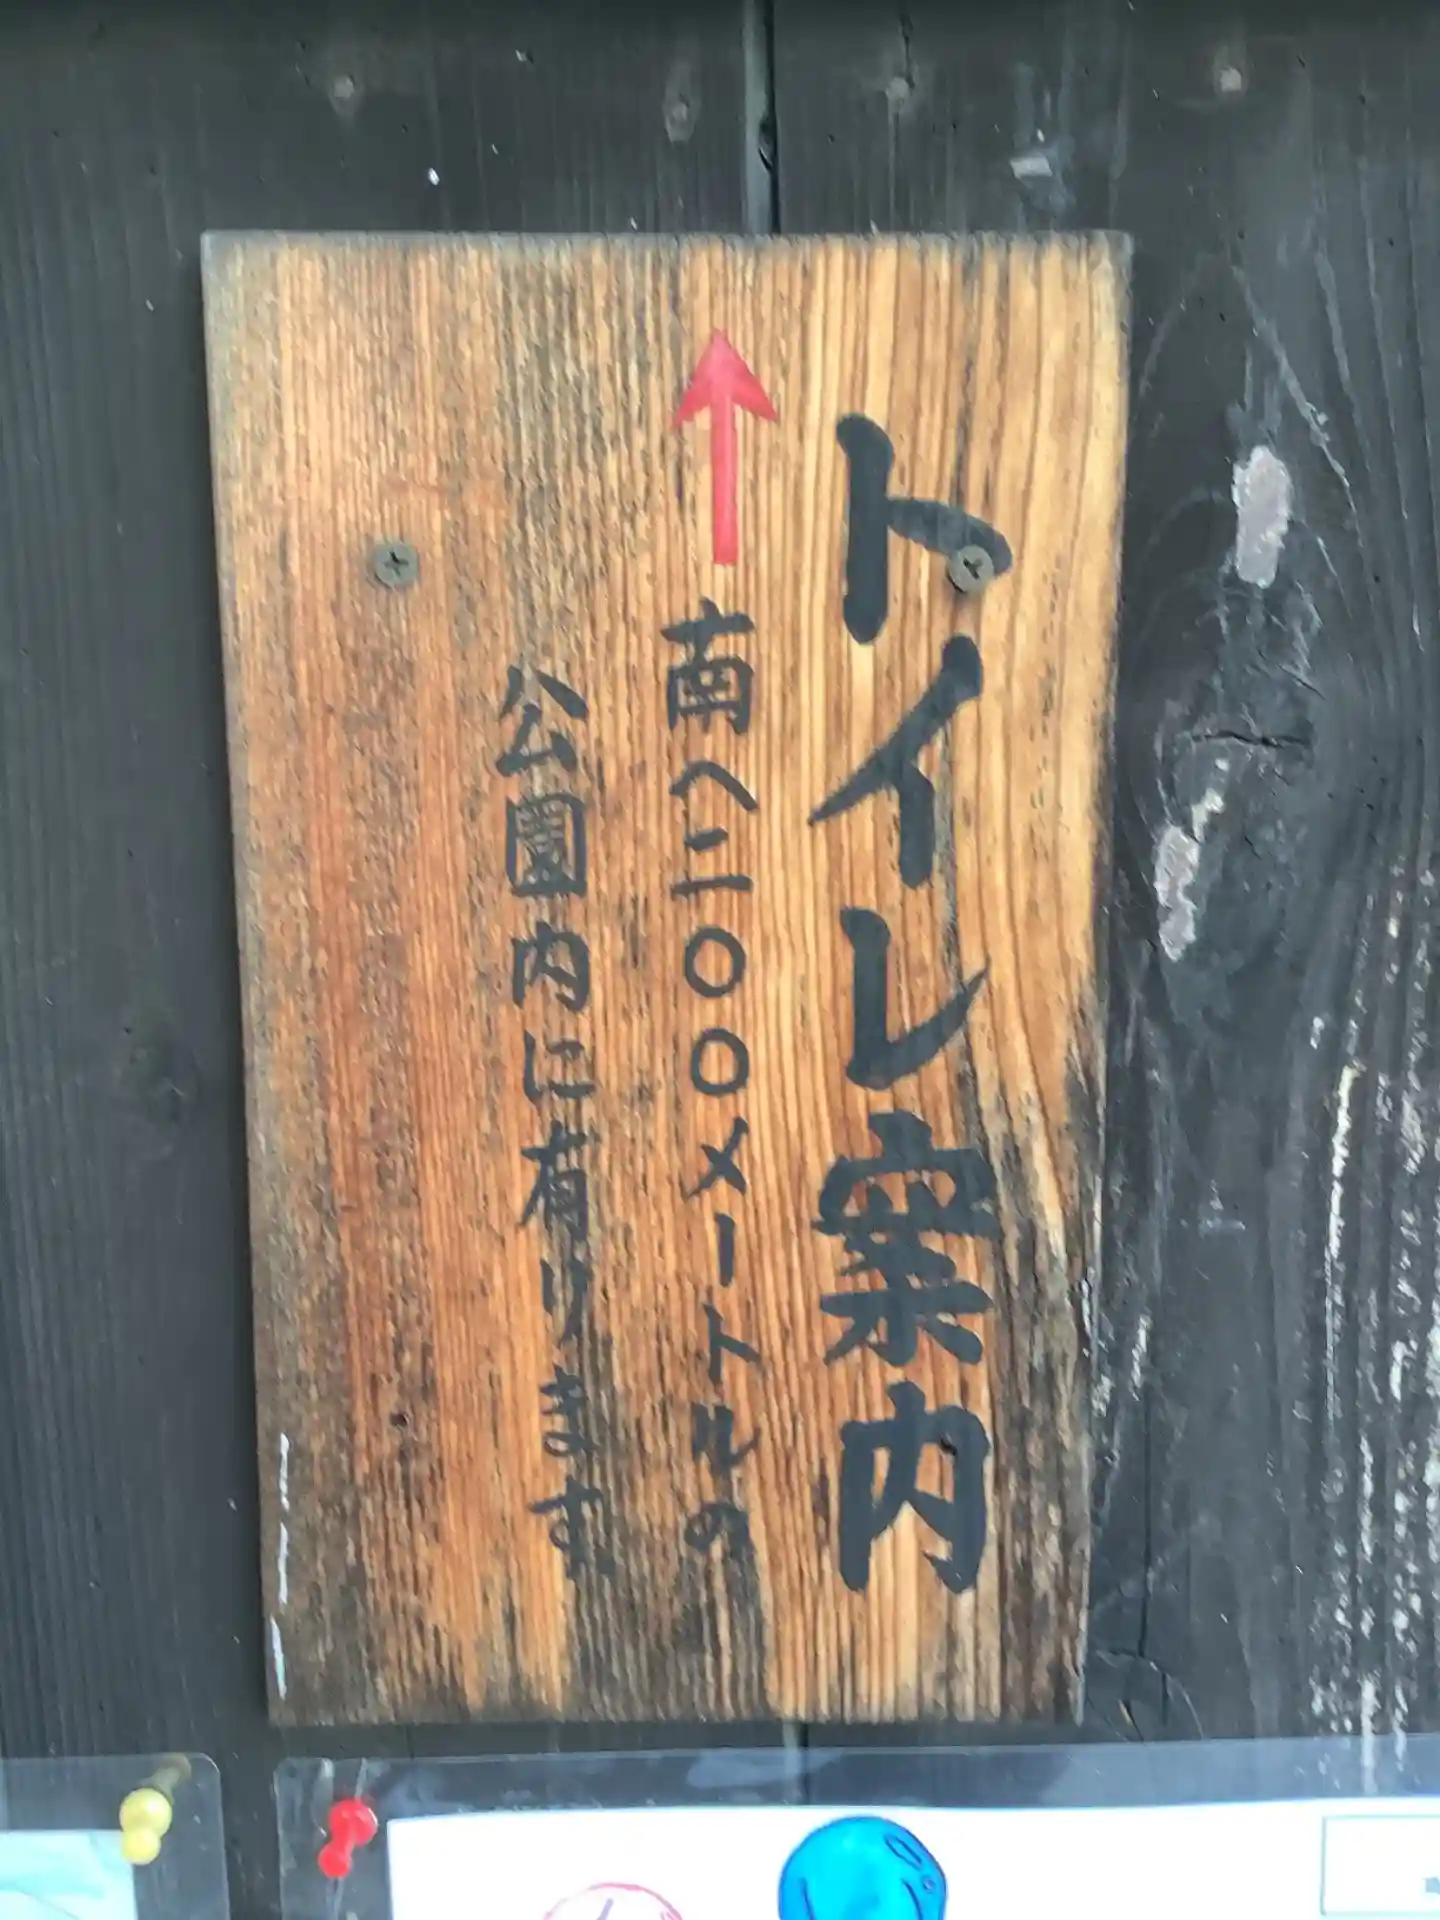 トイレ案内
南へ二〇〇メートルの
公園内に有ります